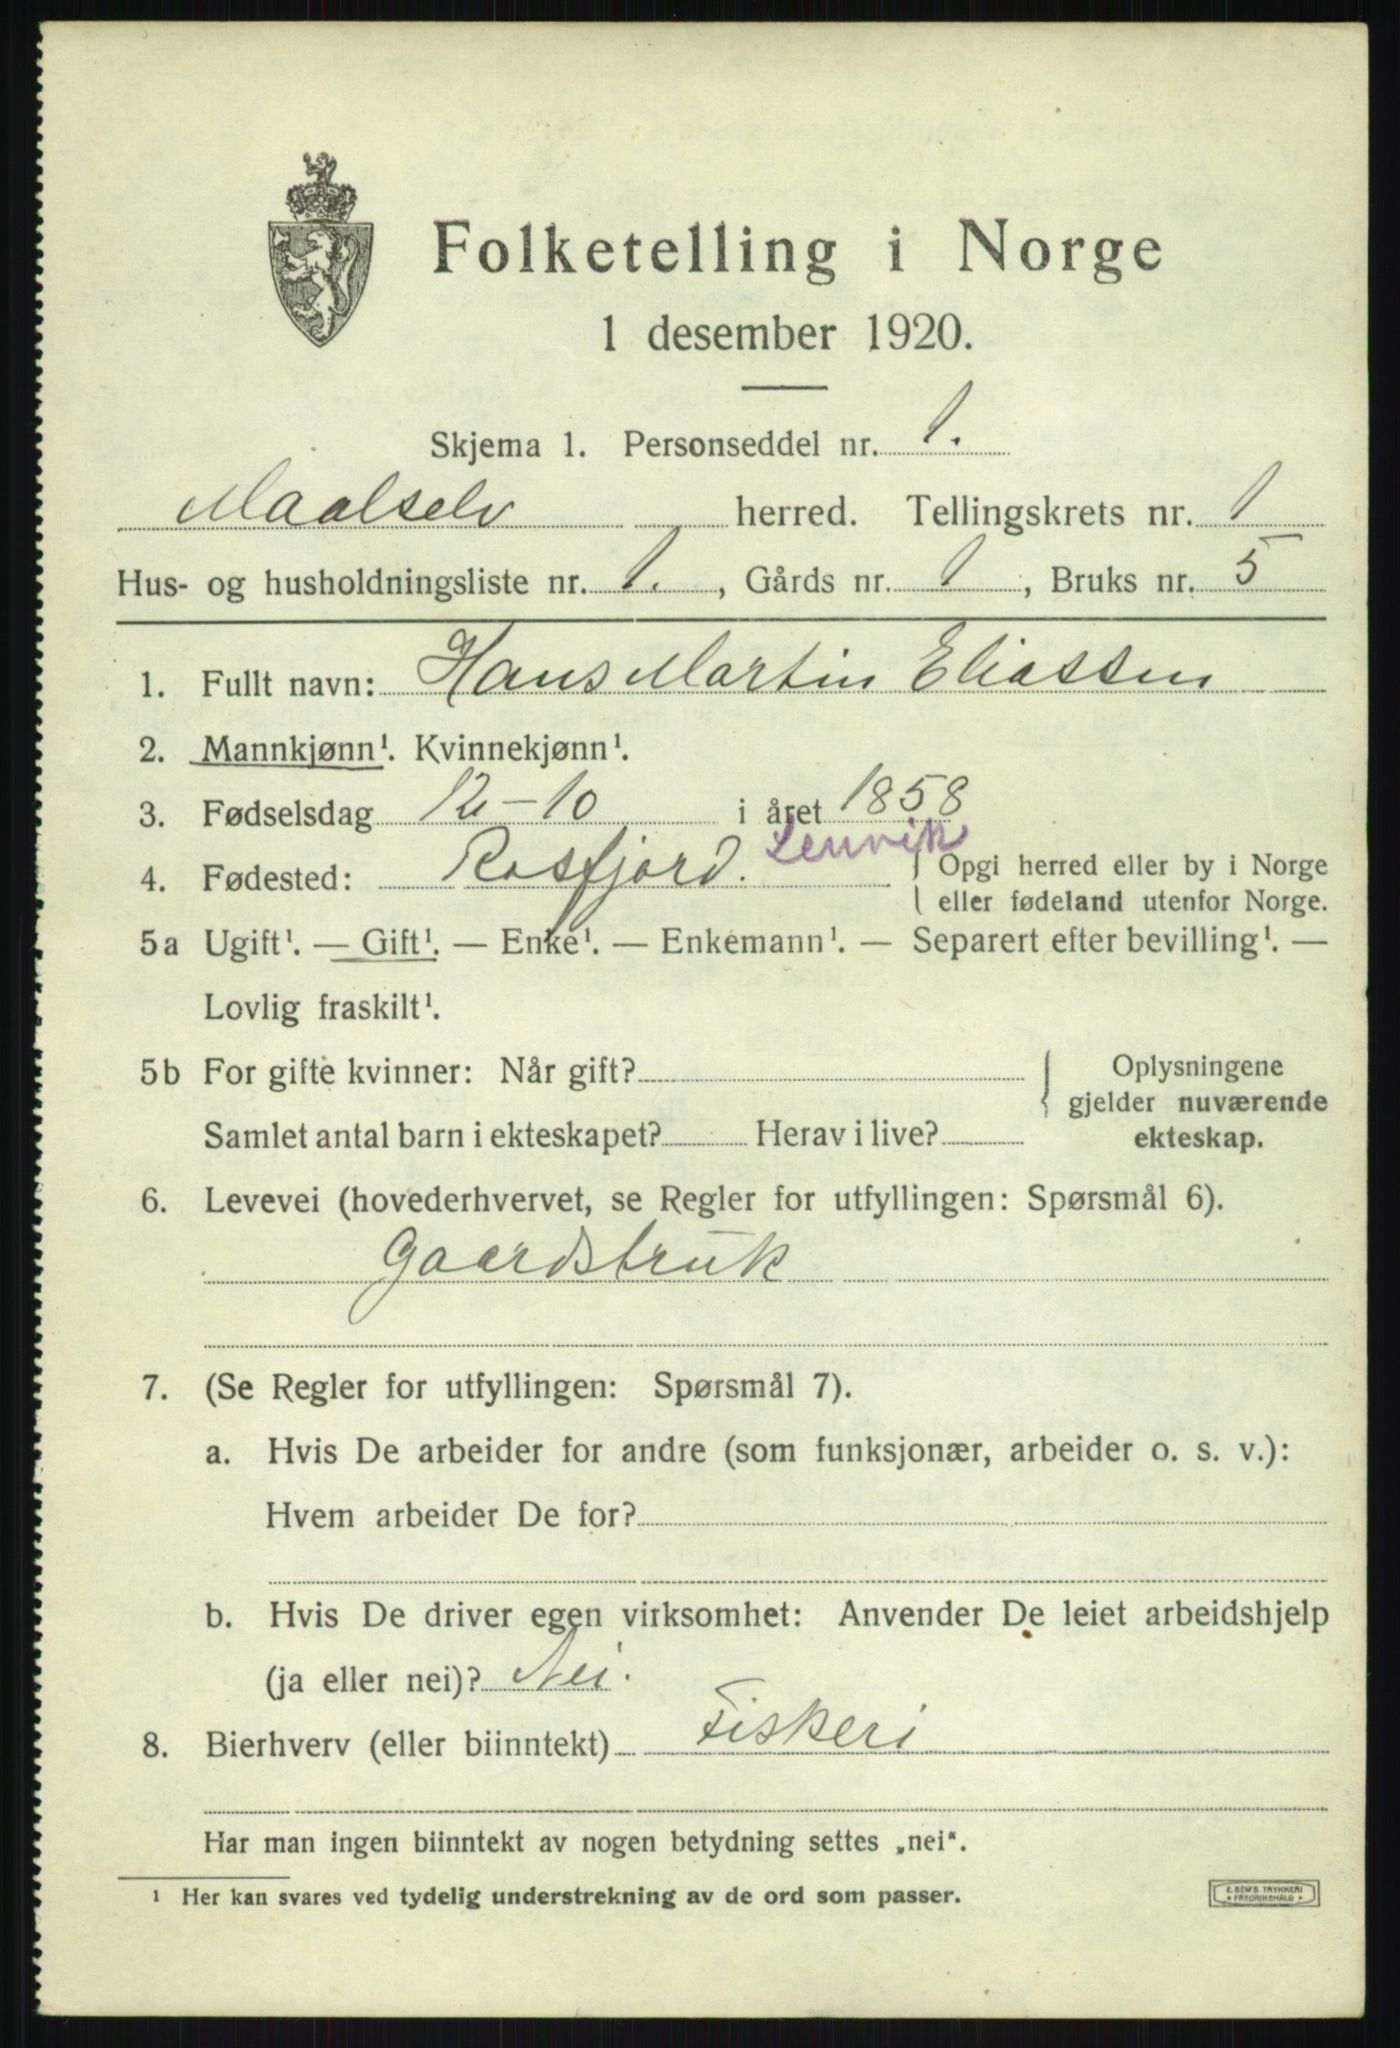 Folketelling i Norge
1 desember 1920.
Skjema 1. Personseddel nr. 1.
Maalselv herred. Tellingskrets nr. 1
Hus- og husholdningsliste nr. 1., Gårds nr. 1, Bruks nr. 5
1. Fullt navn: Hans Martin Eliassen
2. Mannkjønn¹. Kvinnekjønn¹.
3. Fødselsdag 12-10 i året 1858
Lenvik
4. Fødested: Rosfjord. Opgi herred eller by i Norge
eller fødeland utenfor Norge.
5a Ugift¹. — Gift¹. — Enke¹. — Enkemann¹. — Separert efter bevilling¹. —
Lovlig fraskilt¹.
5b For gifte kvinner: Når gift?
Samlet antal barn i ekteskapet? Herav i live?
Oplysningene
gjelder nuværende
ekteskap.
6. Levevei (hovederhvervet, se Regler for utfyllingen: Spørsmål 6).
Gaardsbruk
7. (Se Regler for utfyllingen: Spørsmål 7).
a. Hvis De arbeider for andre (som funksjonær, arbeider o. s. v.):
Hvem arbeider De for?
b. Hvis De driver egen virksomhet: Anvender De leiet arbeidshjelp
(ja eller nei)? Nei.
8. Bierhverv (eller biinntekt) Fiskeri
Har man ingen biinntekt av nogen betydning settes „nei“.
¹ Her kan svares ved tydelig understrekning av de ord som passer.
E. SEM'S TRYKKERI
FREDRIKSHALD